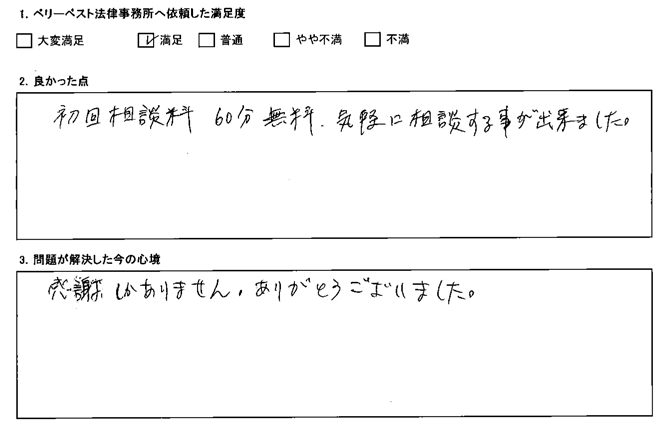 1. ベリーベスト法律事務所へ依頼した満足度
□ 大変満足 ☑ 満足 □ 普通 □ やや不満 □ 不満
2. 良かった点
初回相談料 60分無料、気軽に相談する事が出来ました。
3. 問題が解決した今の心境
感謝しかありません。ありがとうございました。